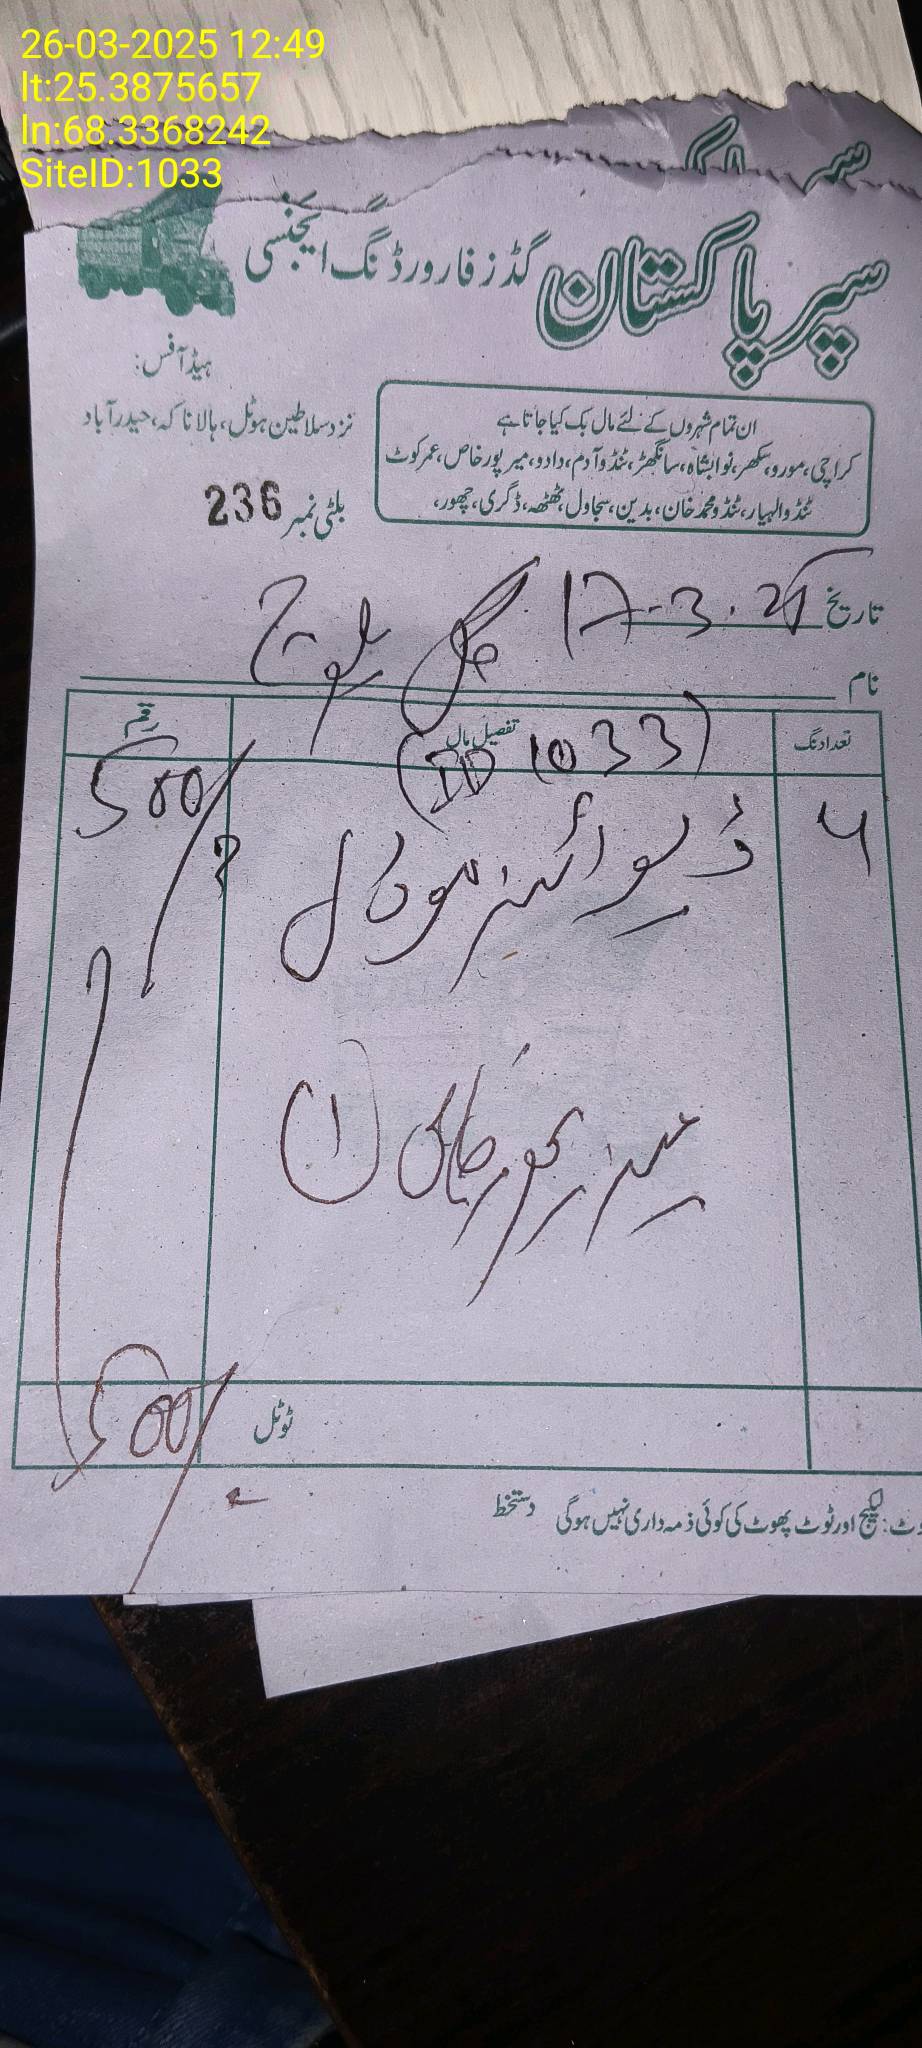 26-03-2025 12:49
lt:25.3875657
ln:68.3368242
SiteID:1033
سپر پاکستان گڈز فارورڈنگ ایجنسی
ہیڈ آفس:
نزد سلاطین ہوٹل، ہالا ناکہ، حیدرآباد
ان تمام شہروں کے لئے مال بک کیا جاتا ہے
کراچی، مورو، سکھر، نوابشاہ، سانگھڑ، ٹنڈو آدم، دادو، میرپور خاص، عمر کوٹ
ٹنڈوالہیار، ٹنڈو محمد خان، بدین، سجاول، ٹھٹھہ، ڈگری، چھور،
بلٹی نمبر 236
تاریخ 17-3-25
نام گل بلوچ
تعداد نگ تفصیل مال رقم
(ID 1033)
4 500/
میرپور خاص (1)
ٹوٹل 500/
وٹ: لیکیج اور ٹوٹ پھوٹ کی کوئی ذمہ داری نہیں ہوگی دستخط